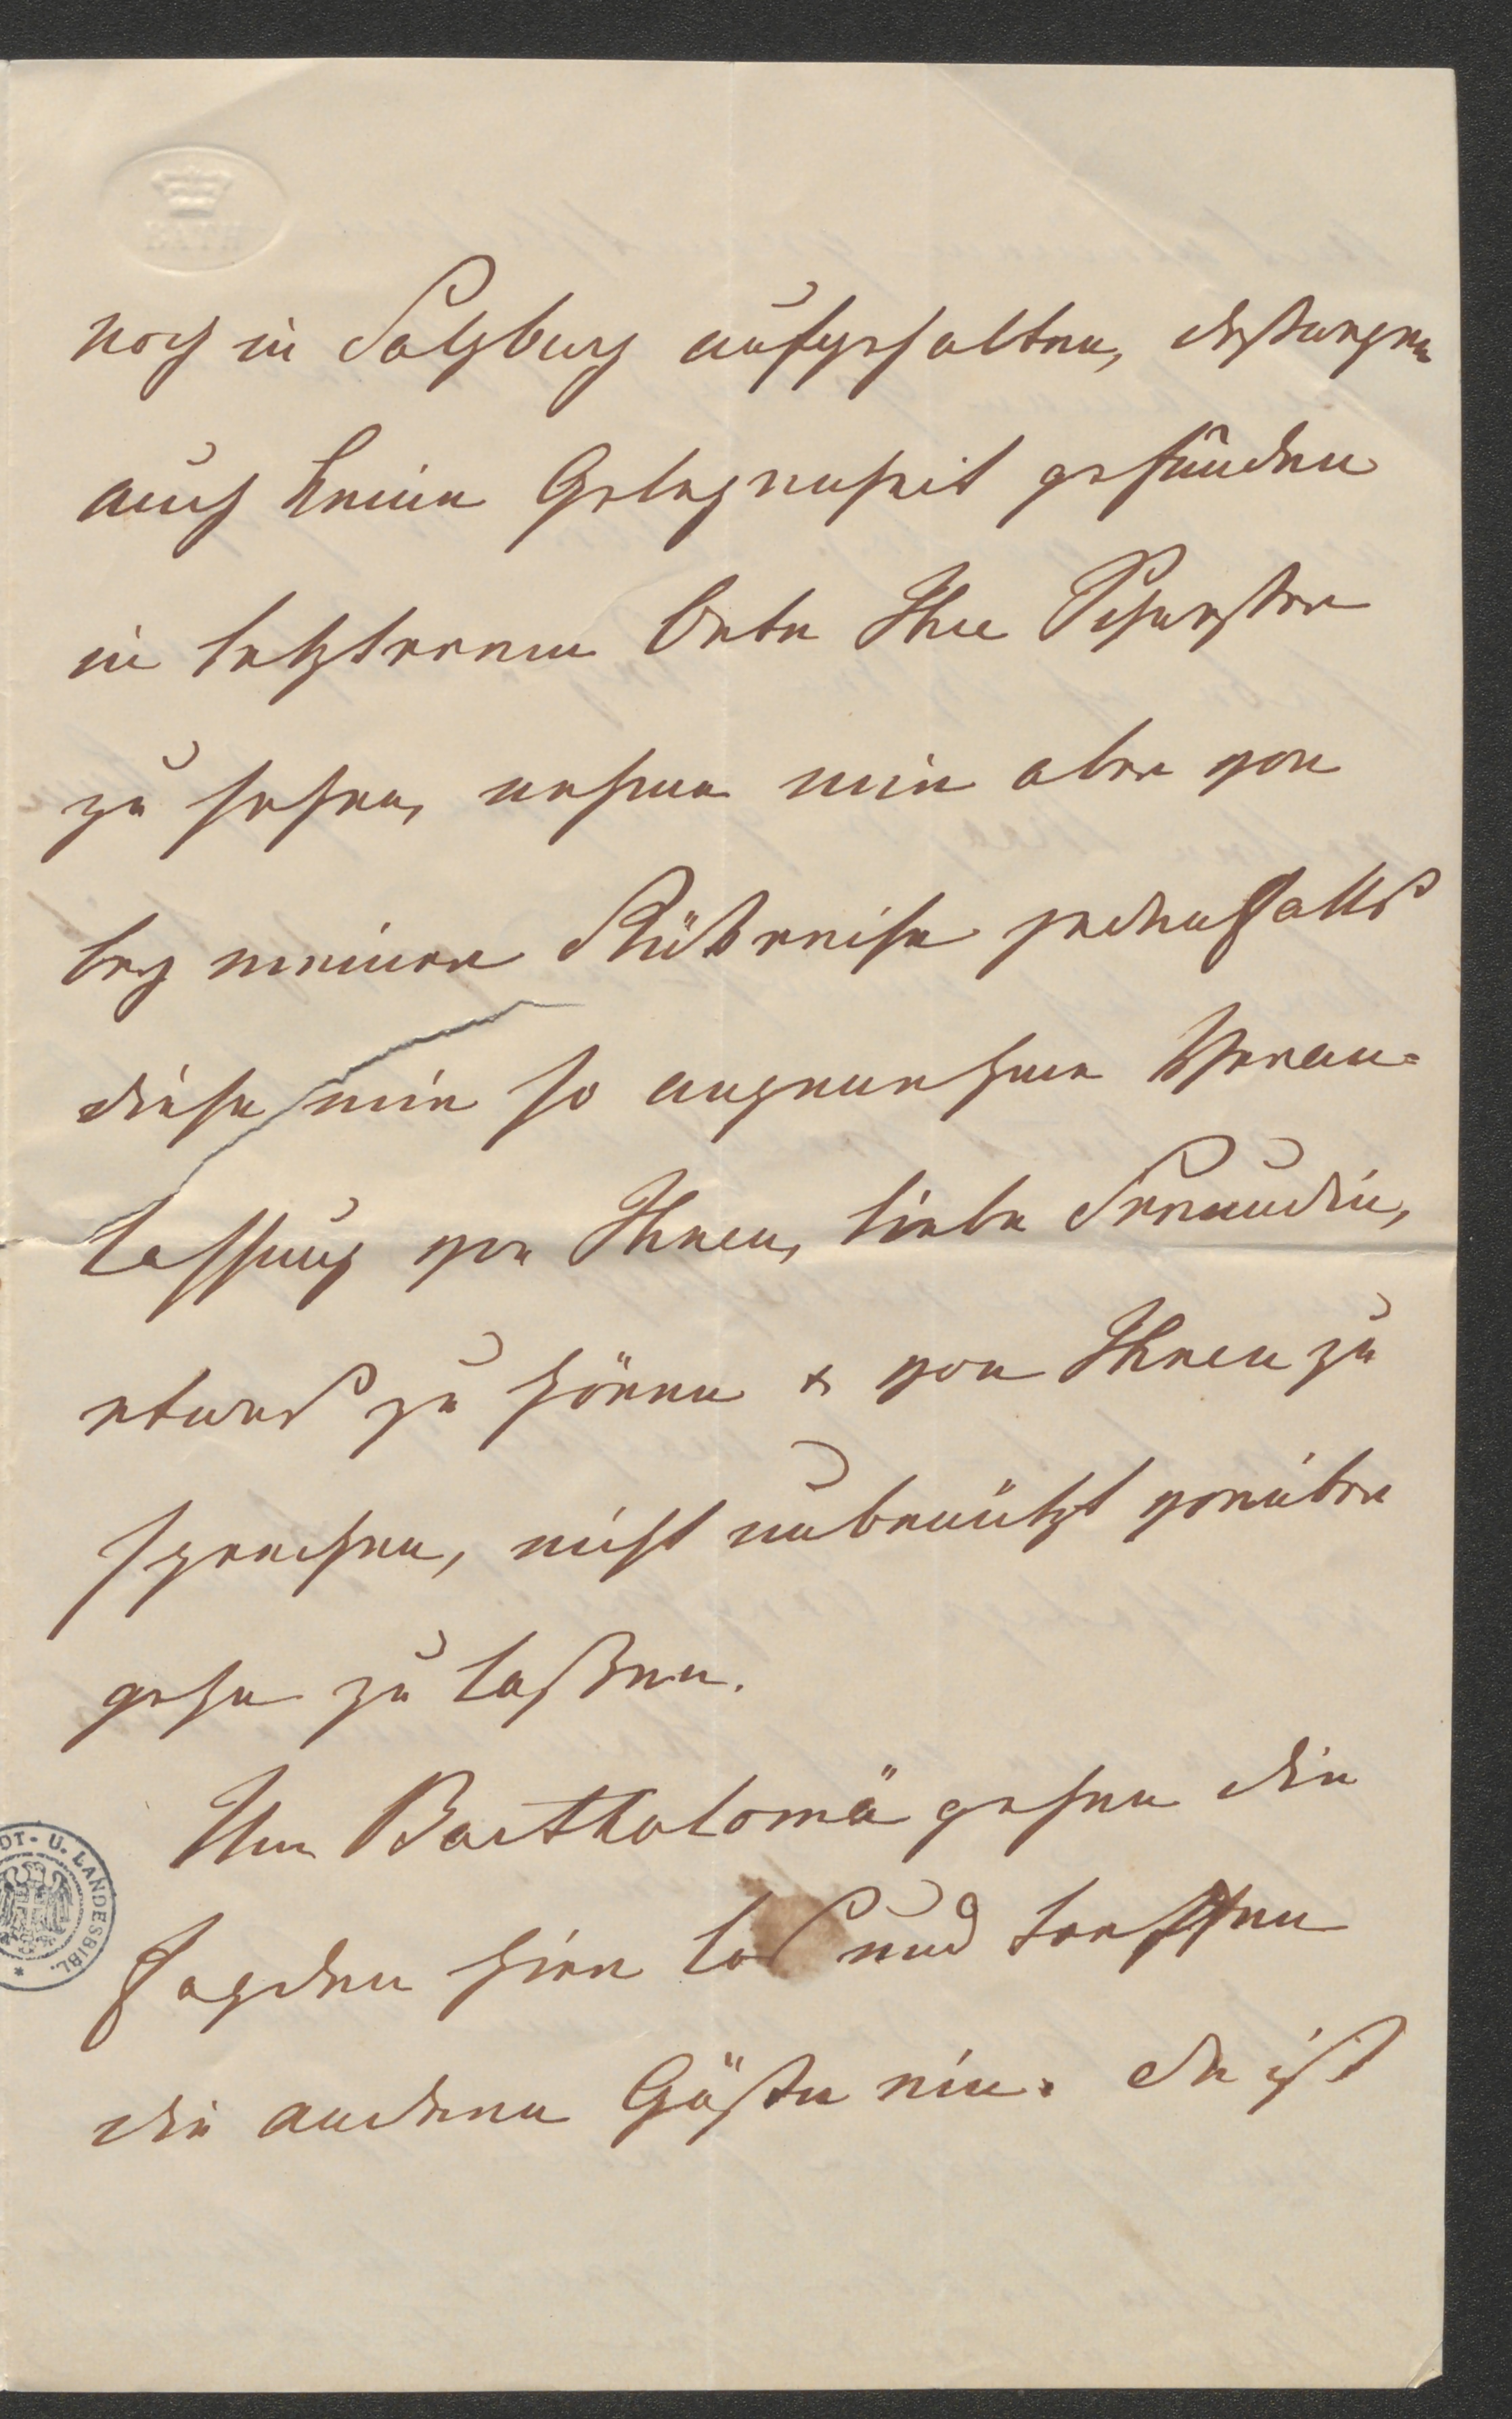 noch in Salzburg aufgehalten, deßwegen
auch keine Gelegenheit gefunden
in letzterem Orte Ihre Schwester
zu sehen, nehme mir aber vor
bey meiner Rückreise jedenfalls
diese mir so angenehme Veran-
lassung von Ihnen, liebe Freundin,
etwas zu hören & von Ihnen zu
sprechen, nicht unbenützt vorüber
gehn zu laßen.
Um Bartholomä gehen die
Jagden hier los und treffen
die andern Gäste ein. Da ist
DT- U. LANDESBIBL.